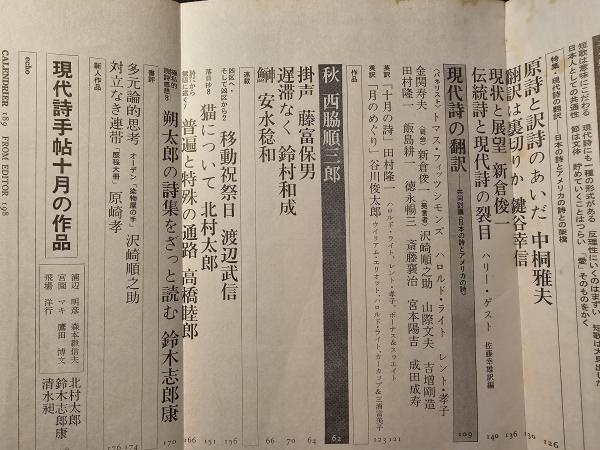 短歌は意味にこだわる 現代詩にも一種の形式がある 反理性にいくのはまずい 短歌は大見出し
日本人としての共通性 節は文体 貯めていくことはつらい 「愛」そのものをかく
特集・現代詩の翻訳 日本の詩とアメリカの詩との架橋
原詩と訳詩のあいだ 中桐雅夫 126
翻訳は裏切りか 鍵谷幸信 130
現状と展望 新倉俊一 136
伝統詩と現代詩の裂目 ハリー・ゲスト 佐藤幸雄訳編 140
現代詩の翻訳 共同討議〈日本の詩とアメリカの詩〉 109
〈パネリスト〉トマス・フィッツシモンズ ハロルド・ライト レント・孝子
金関寿夫 〈司会〉新倉俊一 〈発言者〉沢崎順之助 山際文夫 吉増剛造
田村隆一 飯島耕一 徳永暢三 斎藤襄治 宮本陽吉 成田成寿
英訳 「十月の詩」田村隆一 ハロルド・ライト、レント・孝子、ボーナス&スウェイト 121
英訳 「月のめぐり」谷川俊太郎 ウイリアム・エリオット、ハロルド・ライト、カーカップ&三浦富美子 123
作品
秋 西脇順三郎 62
掛声 藤富保男 64
遅滞なく 鈴村和成 70
鰤 安水稔和 66
連載
凶区へそして凶区から? 移動祝祭日 渡辺武信 156
落日抄8 猫について 北村太郎 151
詩だから解読に近く7 普遍と特殊の通路 高橋睦郎 166
極私的関詩感想8 朔太郎の詩集をざっと読む 鈴木志郎康 170
書評
多元論的思考 オーデン「染物屋の手」 沢崎順之助 174
対立なき連帯 「歴程大冊」 原崎孝 176
新人作品
現代詩手帖十月の作品
浦辺明彦 森本紲信夫
宮園マキ 鷹田博文
飛場洋行
北村太郎
鈴木志郎康
清水昶
echo
CALENDRIER 189 FROM EDITOR 198